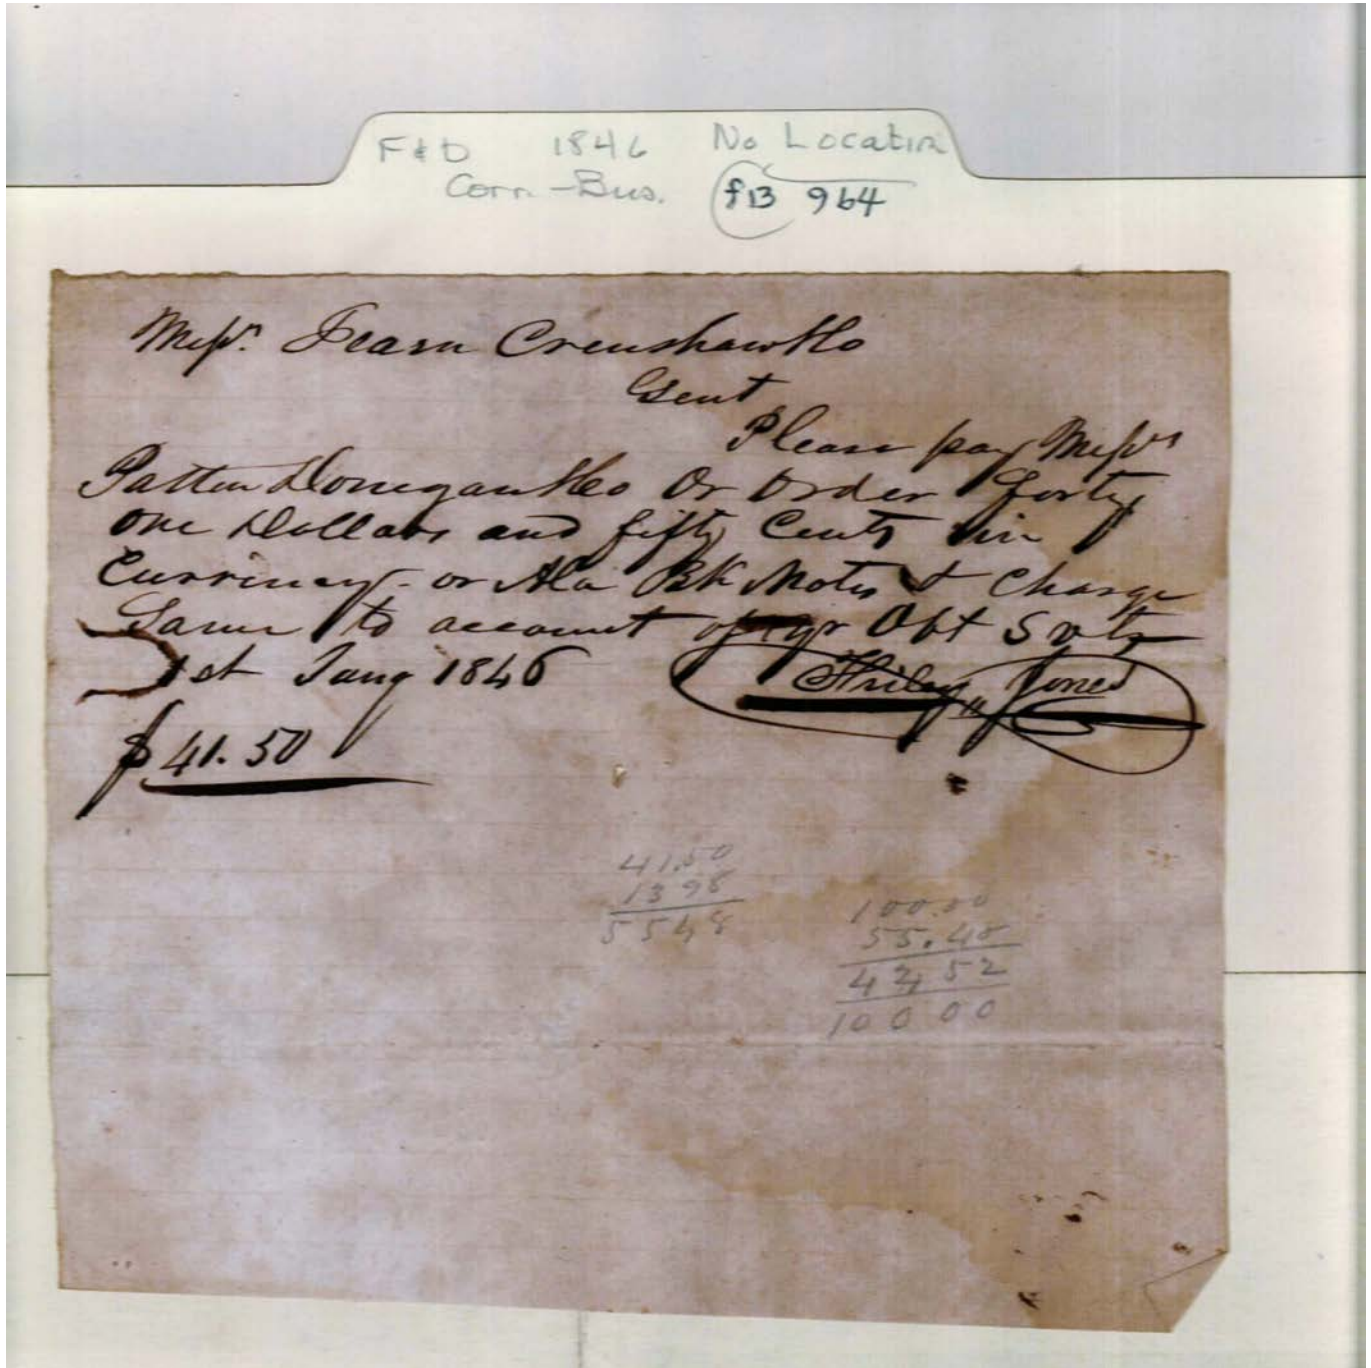 F&D 1846 No Location
Corr. - Bus. f13 964
Messrs. Fearn Crenshaw & Co
Gent
Please pay Messrs
Patton Donegan & Co Or Order Forty
one Dollars and fifty Cents in
Currincy or Ala Bk Notes & Charge
Same to account of yr Obt Svts
1st Jany 1846 Jones
$41.50
41.50
13 98
55 48
100.00
55.48
44 52
100 00